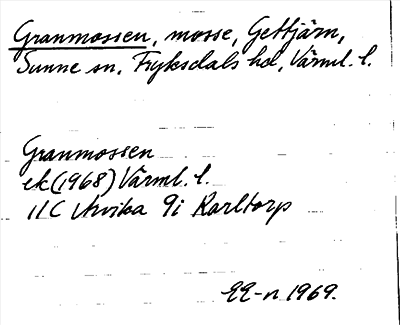 Granmossen, mosse, Gettjärn,
Sunne sn, Fryksdals hd, Värml. l.
Granmossen
ek (1968) Värml. l.
11C Arvika 9i Karltorp
EE-n 1969.